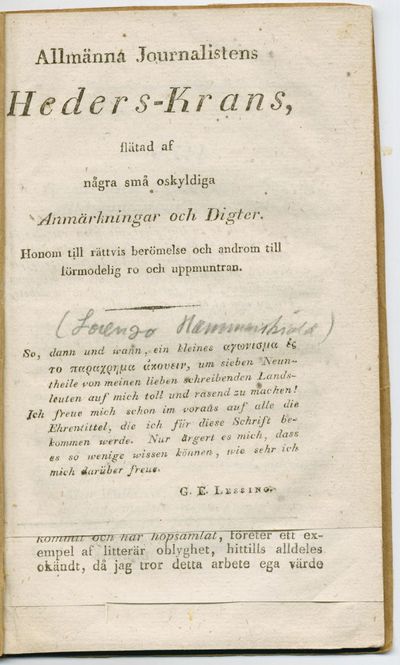 Allmänna Journalistens
Heders-Krans,
flätad af
några små oskyldiga
Anmärkningar och Digter.
Honom till rättvis berömelse och androm till
förmodelig ro och uppmuntran.
(Lorenzo Hammarsköld)
So, dann und wann, ein kleines αγωνισμα ές
το παραχρημα άκουειν, um sieben Neun-
theile von meinen lieben schreibenden Lands-
leuten auf mich toll und rasend zu machen!
Ich freue mich schon im voraus auf alle die
Ehrentittel, die ich für diese Schrift be-
kommen werde. Nur ärgert es mich, dass
es so wenige wissen können, wie sehr ich
mich darüber freue.
G. E. Lessing.
kommit och har hopsamlat, företer ett ex-
empel af litterär oblyghet, hittills alldeles
okändt, då jag tror detta arbete ega värde